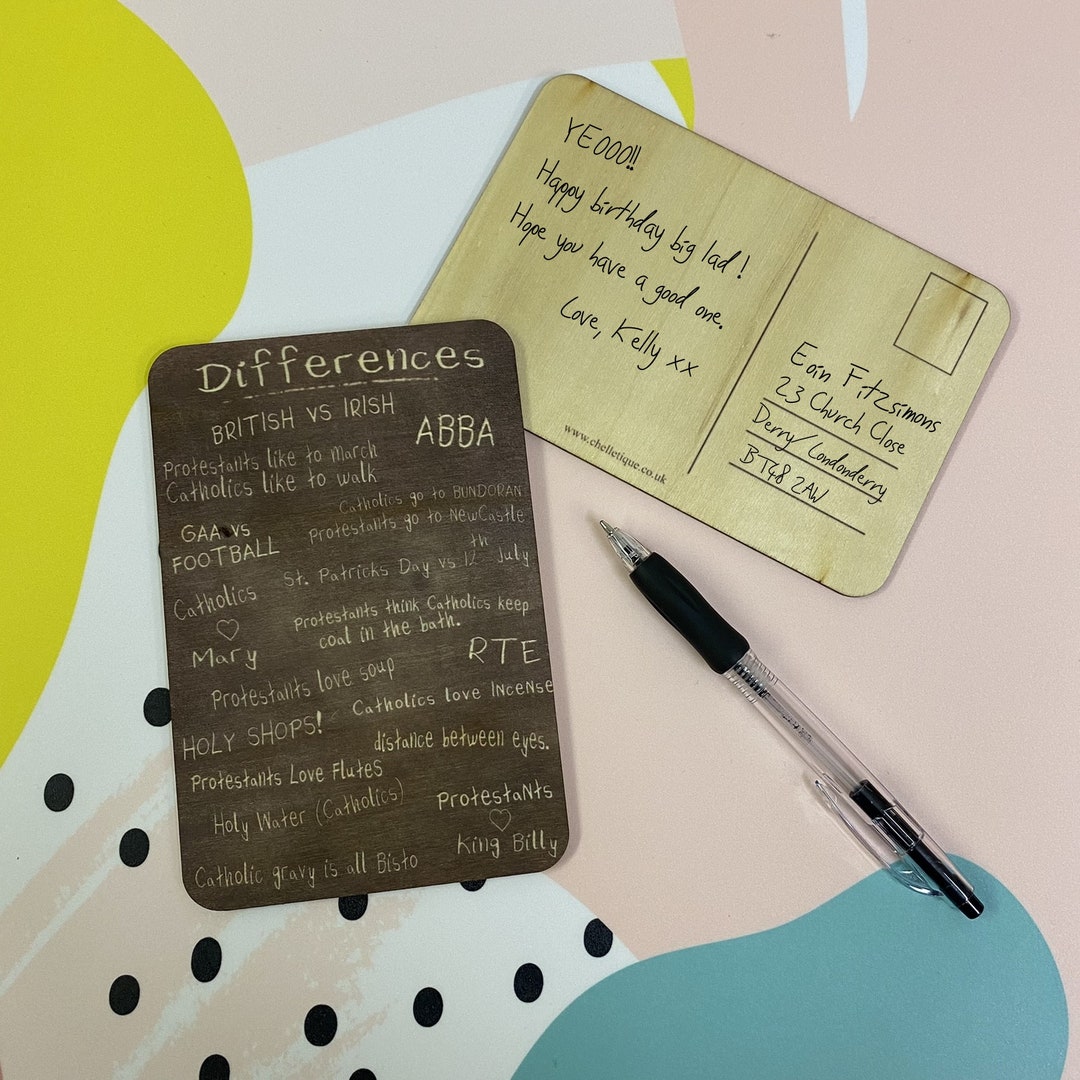 YEOOO!!
Happy birthday big lad!
Hope you have a good one.
Love, Kelly xx
www.chelletique.co.uk
Eoin Fitzsimons
23 Church Close
Derry/Londonderry
BT48 2AW
Differences
BRITISH VS IRISH
ABBA
Protestants like to march
Catholics like to walk
Catholics go to BUNDORAN
Protestants go to NewCastle
GAA vs
FOOTBALL
St. Patricks Day vs 12th July
Catholics
♡
Mary
Protestants think Catholics keep
coal in the bath.
RTE
Protestants love soup
Catholics love INceNse
HOLY SHOPS!
distance between eyes.
Protestants Love Flutes
Holy Water (Catholics)
ProtestaNts
♡
King Billy
Catholic gravy is all Bisto